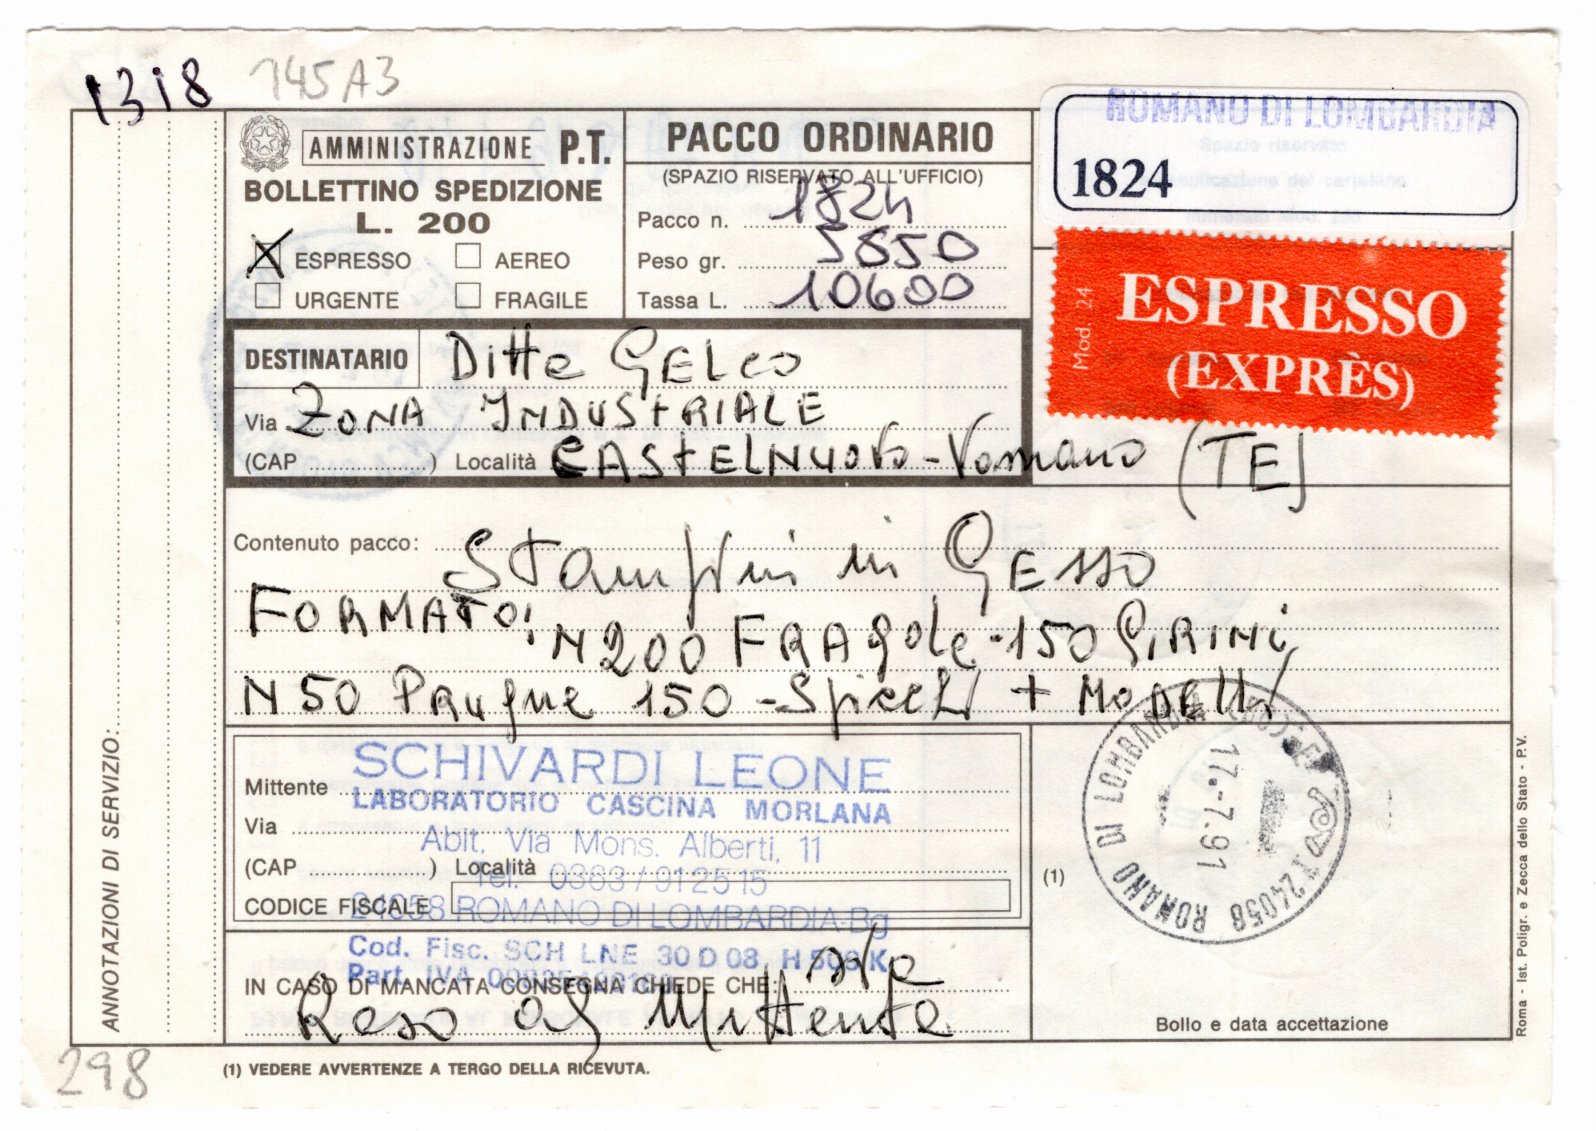 1318 145A3
AMMINISTRAZIONE P.T.
BOLLETTINO SPEDIZIONE
L. 200
ESPRESSO AEREO
URGENTE FRAGILE
PACCO ORDINARIO
(SPAZIO RISERVATO ALL'UFFICIO)
Pacco n. 1824
Peso gr. 5850
Tassa L. 10600
ROMANO DI LOMBARDIA
1824
Mod. 24
ESPRESSO
(EXPRÈS)
DESTINATARIO Ditta GELCO
Via ZONA INDUSTRIALE
(CAP ) Località CASTELNUOVO-Vomano (TE)
Contenuto pacco: Stampini in GESSO
FORMATO: N 200 FRAGOLE-150 GIRINI
N 50 PRUGNE 150 - + MODELLI
Mittente SCHIVARDI LEONE
LABORATORIO CASCINA MORLANA
Via Abit. Via Mons. Alberti, 11
(CAP ) Località Tel. 0363/912515
CODICE FISCALE 24058 ROMANO DI LOMBARDIA-Bg
Cod. Fisc. SCH LNE 30 D 08, H 509 K
Part. IVA
IN CASO DI MANCATA CONSEGNA CHIEDE CHE:
Reso al Mittente
(1)
24058 ROMANO DI LOMBARDIA (BG)
17.-7.91
Bollo e data accettazione
ANNOTAZIONI DI SERVIZIO:
Roma - Ist. Poligr. e Zecca dello Stato - P.V.
298
(1) VEDERE AVVERTENZE A TERGO DELLA RICEVUTA.